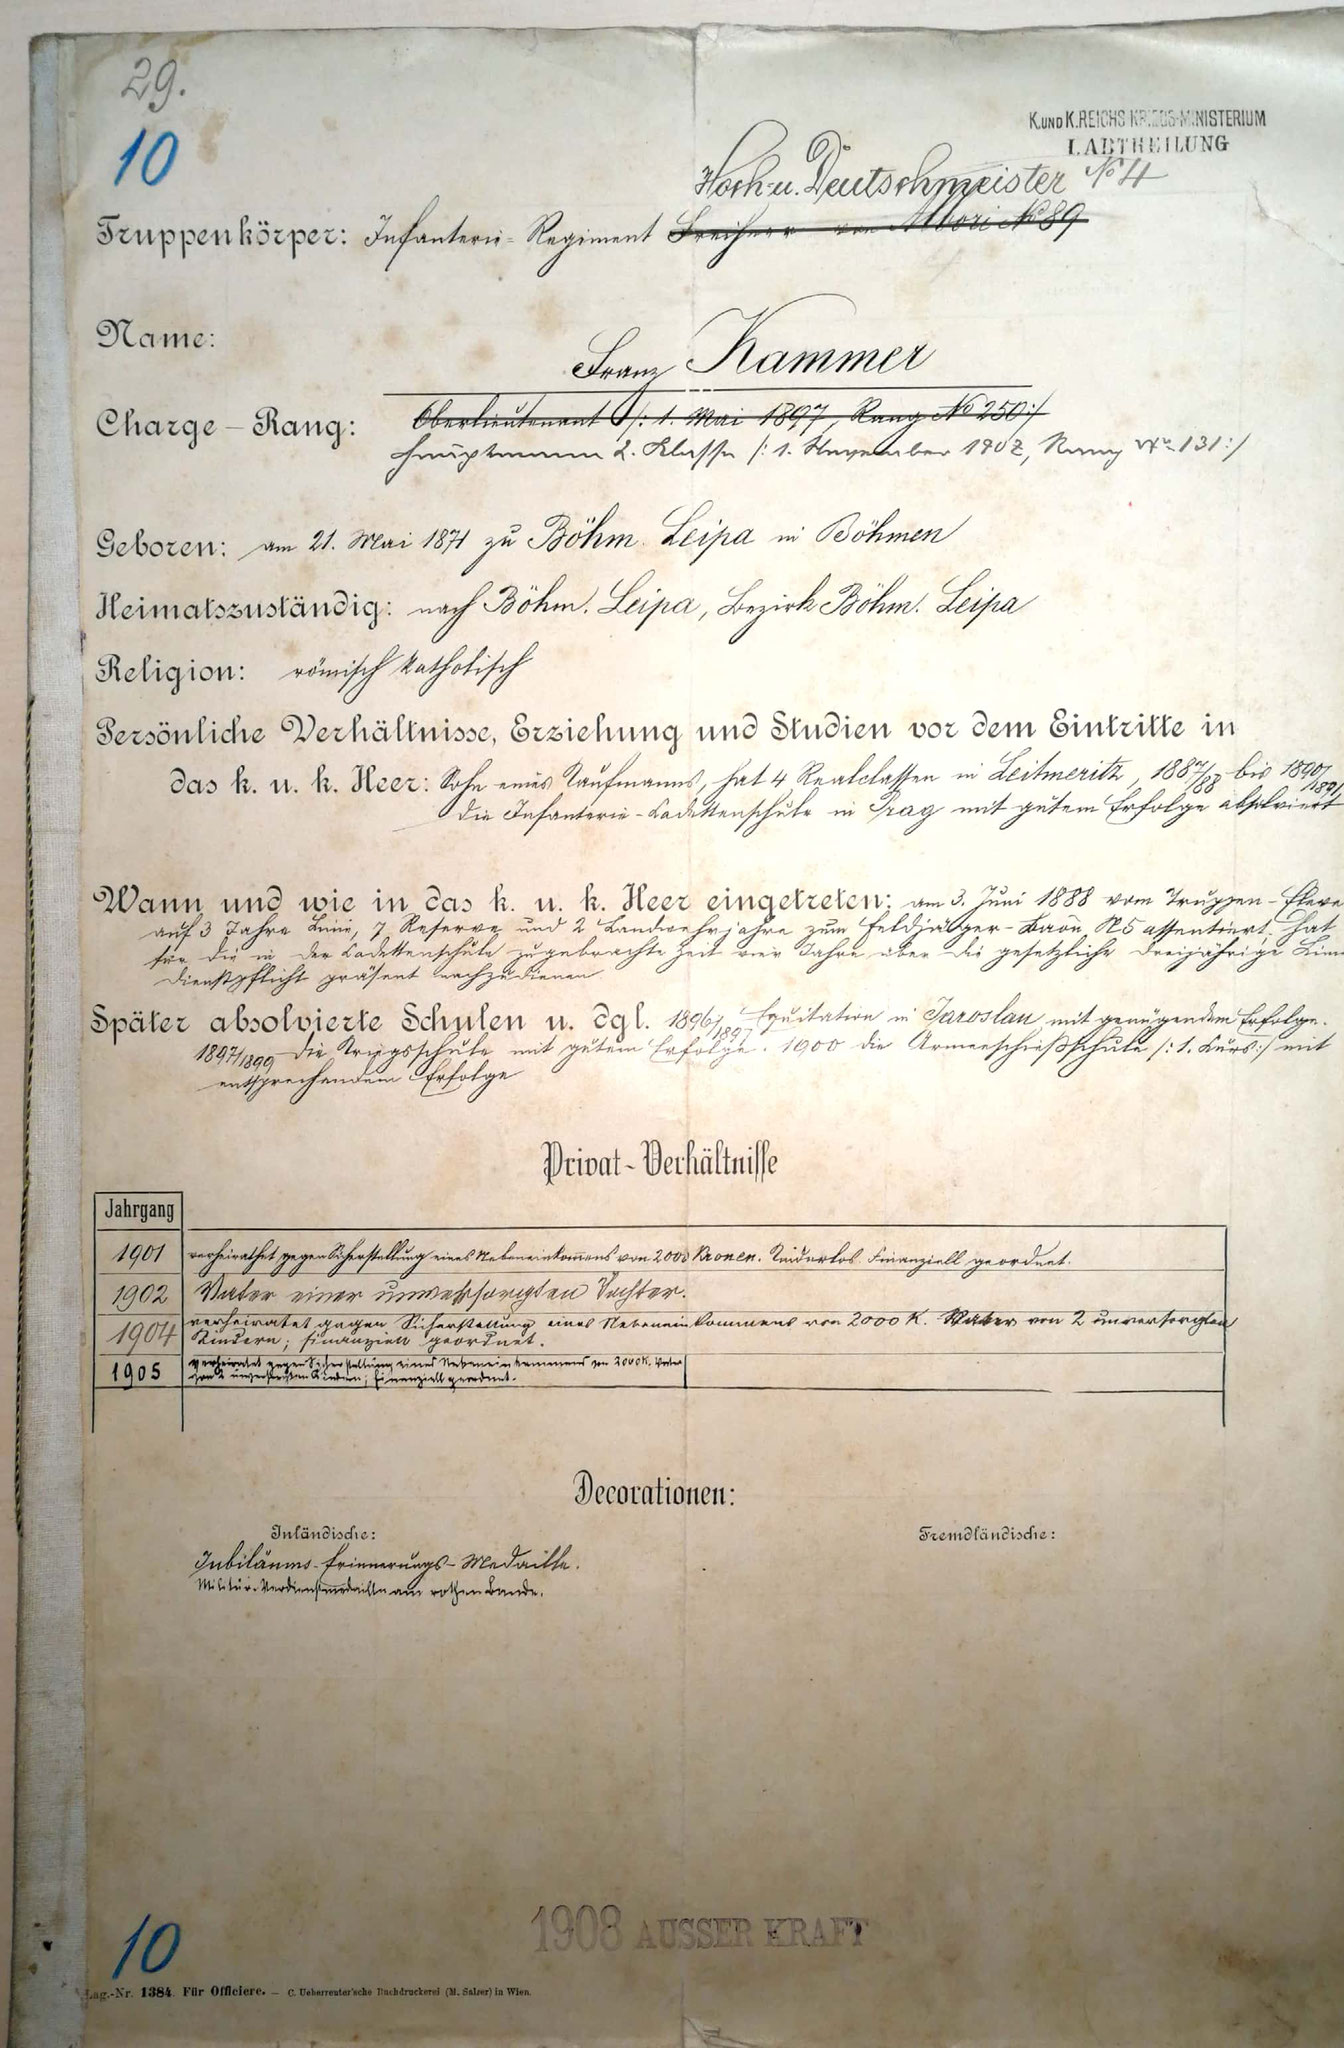 29.
10
K. UND K. REICHS KRIEGS-MINISTERIUM
I. ABTHEILUNG
Hoch- u. Deutschmeister No 4
Truppenkörper: Infanterie-Regiment Freiherr von Albori No 89
Name:
Franz Kammer
Charge - Rang: Oberlieutenant /: 1. Mai 1897, Rang No 250:/
Hauptmann 2. Klasse /: 1. November 1902, Rang No 131:/
Geboren: am 21. Mai 1871 zu Böhm. Leipa in Böhmen
Heimatszuständig: nach Böhm. Leipa, Bezirk Böhm. Leipa
Religion: römisch katholisch
Persönliche Verhältnisse, Erziehung und Studien vor dem Eintritte in
das k. u. k. Heer: Sohn eines Kaufmanns, hat 4 Realclassen in Leitmeritz, 1887/88 bis 1890/1891
die Infanterie-Cadettenschule in Prag mit gutem Erfolge absolviert
Wann und wie in das k. u. k. Heer eingetreten: am 3. Juni 1888 vom Truppen-Eleve
auf 3 Jahre Linie, 7 Reserve und 2 Landwehrjahre zum Feldjäger-Baon N5 assentiert, hat
für die in der Cadettenschule zugebrachte Zeit vier Jahre über die gesetzliche dreijährige
Dienstpflicht präsent nachzudienen
Später absolvierte Schulen u. dgl. 1896/1897 Equitation in Jaroslau mit genügendem Erfolge.
1897/1899 die Kriegsschule mit gutem Erfolge. 1900 die Armeeschießschule /: 1. Kurs:/ mit
entsprechendem Erfolge
Privat-Verhältnisse
Jahrgang
1901 verheirathet gegen Sicherstellung eines Nebeneinkommens von 2000 Kronen. Kinderlos. Finanziell geordnet.
1902 Vater einer unversorgten Tochter.
1904 verheiratet gegen Sicherstellung eines Nebeneinkommens von 2000 K. Vater von 2 unversorgten
Kindern; finanziell geordnet.
1905 verheiratet gegen Sicherstellung eines Nebeneinkommens von 2000 K. Vater
von 2 unversorgten Kindern; finanziell geordnet.
Decorationen:
Inländische:
Fremdländische:
Jubiläums-Erinnerungs-Medaille.
Militär-Verdienstmedaille am rothen Bande.
1908 AUSSER KRAFT
10
Lag.-Nr. 1384. Für Officiere. — C. Ueberreuter'sche Buchdruckerei (M. Salzer) in Wien.